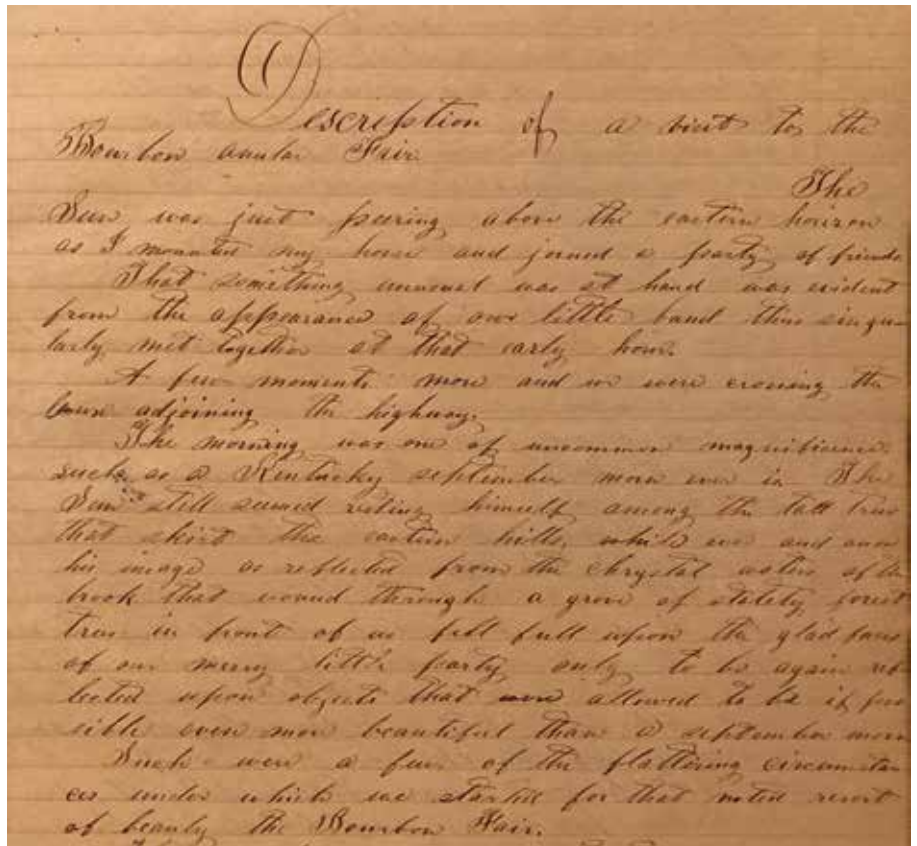 Description of a visit to the
Bourbon anular Fair.
The
Sun was just peering above the eastern horizon
as I mounted my horse and joined a party of friends
That something unusual was at hand was evident
from the appearance of our little band thus singu-
larly met together at that early hour.
A few moments more and we were crossing the
lawn adjoining the highway.
The morning was one of uncommon magnificence
such as a Kentucky september morn ever is The
Sun still seemed resting himself among the tall trees
that skirt the eastern hills, while ever and anon
his image as reflected from the chrystal waters of the
brook that wound through a grove of stately forest
trees in front of us fell full upon the glad faces
of our merry little party only to be again ref
lected upon objects that were allowed to be if pos
sible even more beautiful than a september morn
Such were a few of the flattering circumstan
ces under which we started for that noted resort
of beauty the Bourbon Fair.